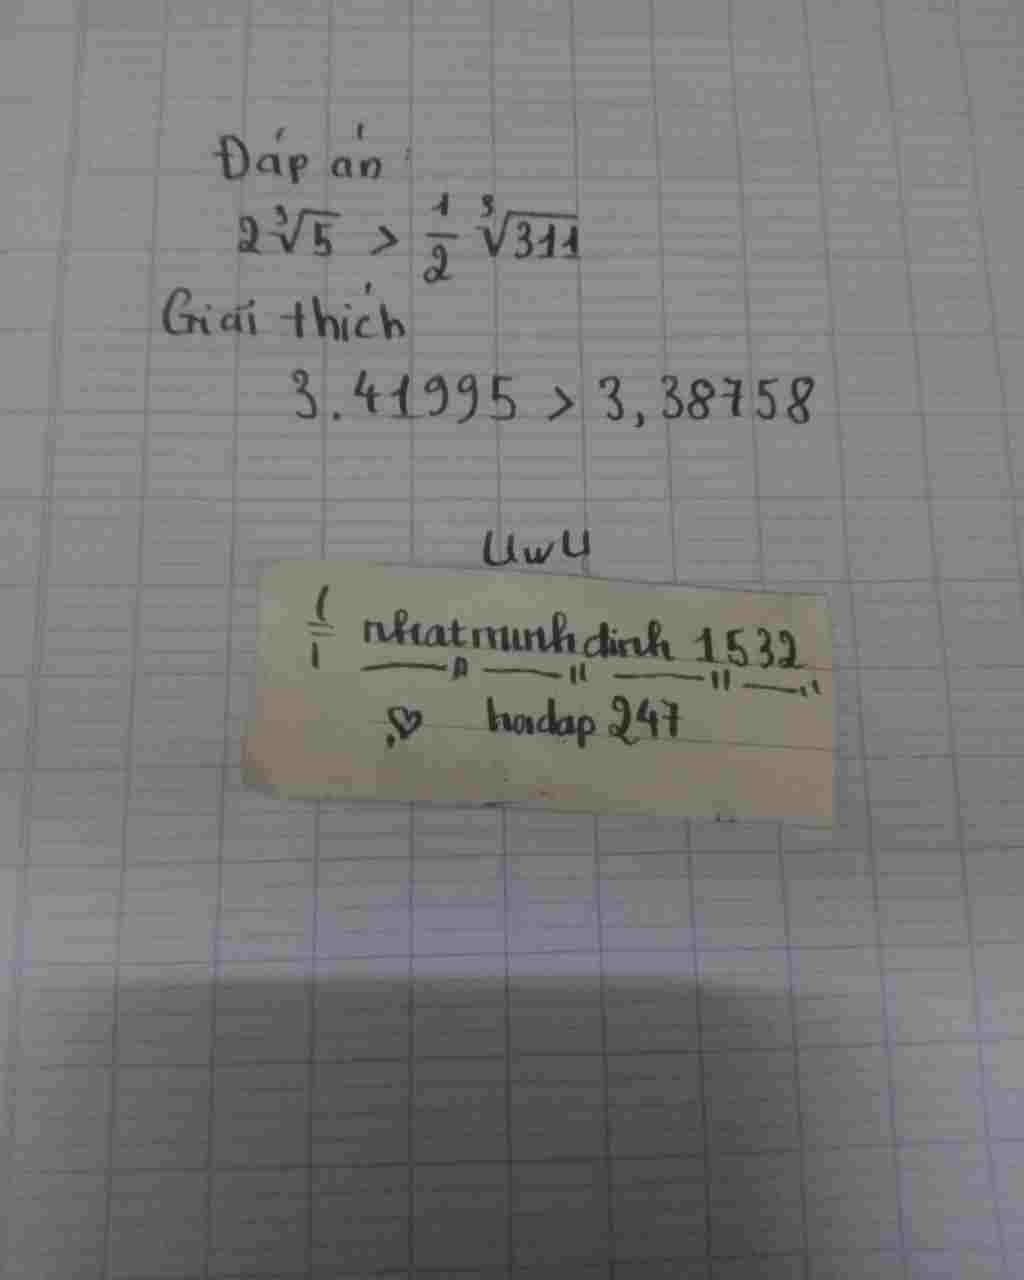 Đáp án
2∛5 > 1/2 ∛311
Giải thích
3.41995 > 3,38758
UwU
nhatminhdinh 1532
hoidap 247